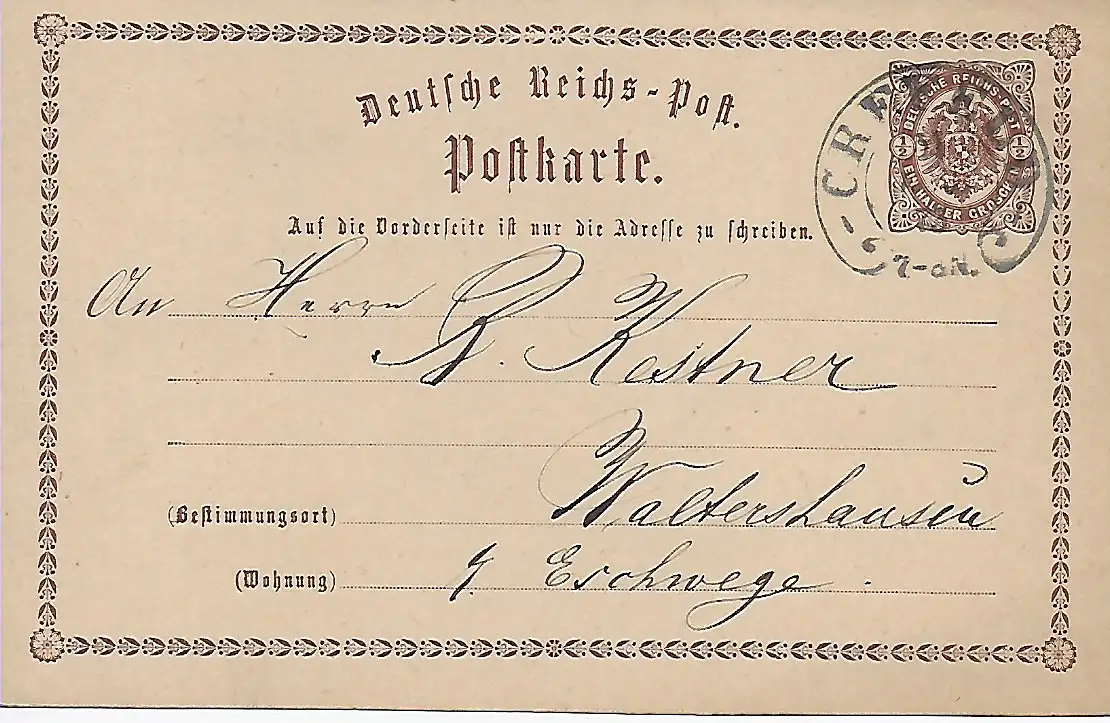 Deutsche Reichs-Post.
Postkarte.
DEUTSCHE REICHS-POST
½ ½
EIN HALBER GROSCHEN
CREFELD
Auf die Vorderseite ist nur die Adresse zu schreiben.
An Herrn
Kestner
Waltershausen
(Bestimmungsort)
(Wohnung) Eschwege